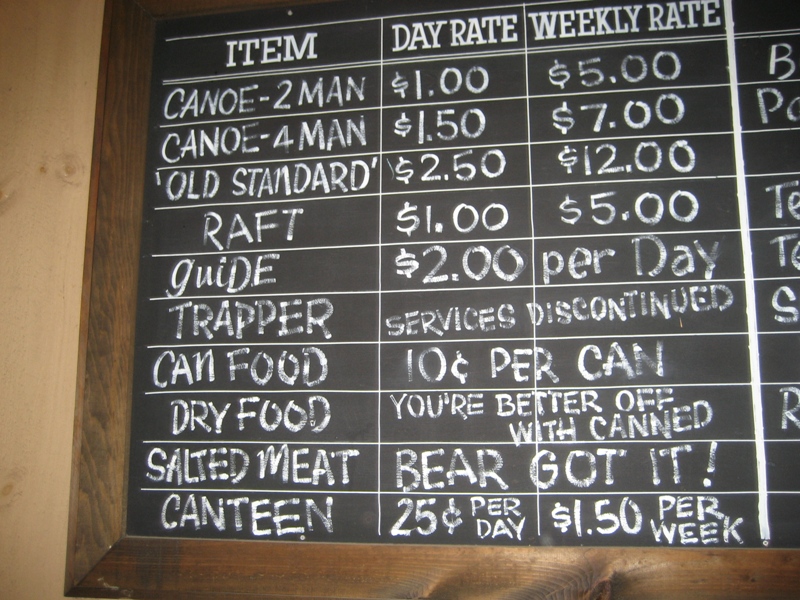 ITEM DAY RATE WEEKLY RATE
CANOE-2 MAN $1.00 $5.00
CANOE-4 MAN $1.50 $7.00
'OLD STANDARD' $2.50 $12.00
RAFT $1.00 $5.00
guiDE $2.00 per Day
TRAPPER SERVICES DISCONTINUED
CAN FOOD 10¢ PER CAN
DRY FOOD YOU'RE BETTER OFF
WITH CANNED
SALTED MEAT BEAR GOT IT!
CANTEEN 25¢ PER DAY $1.50 PER WEEK